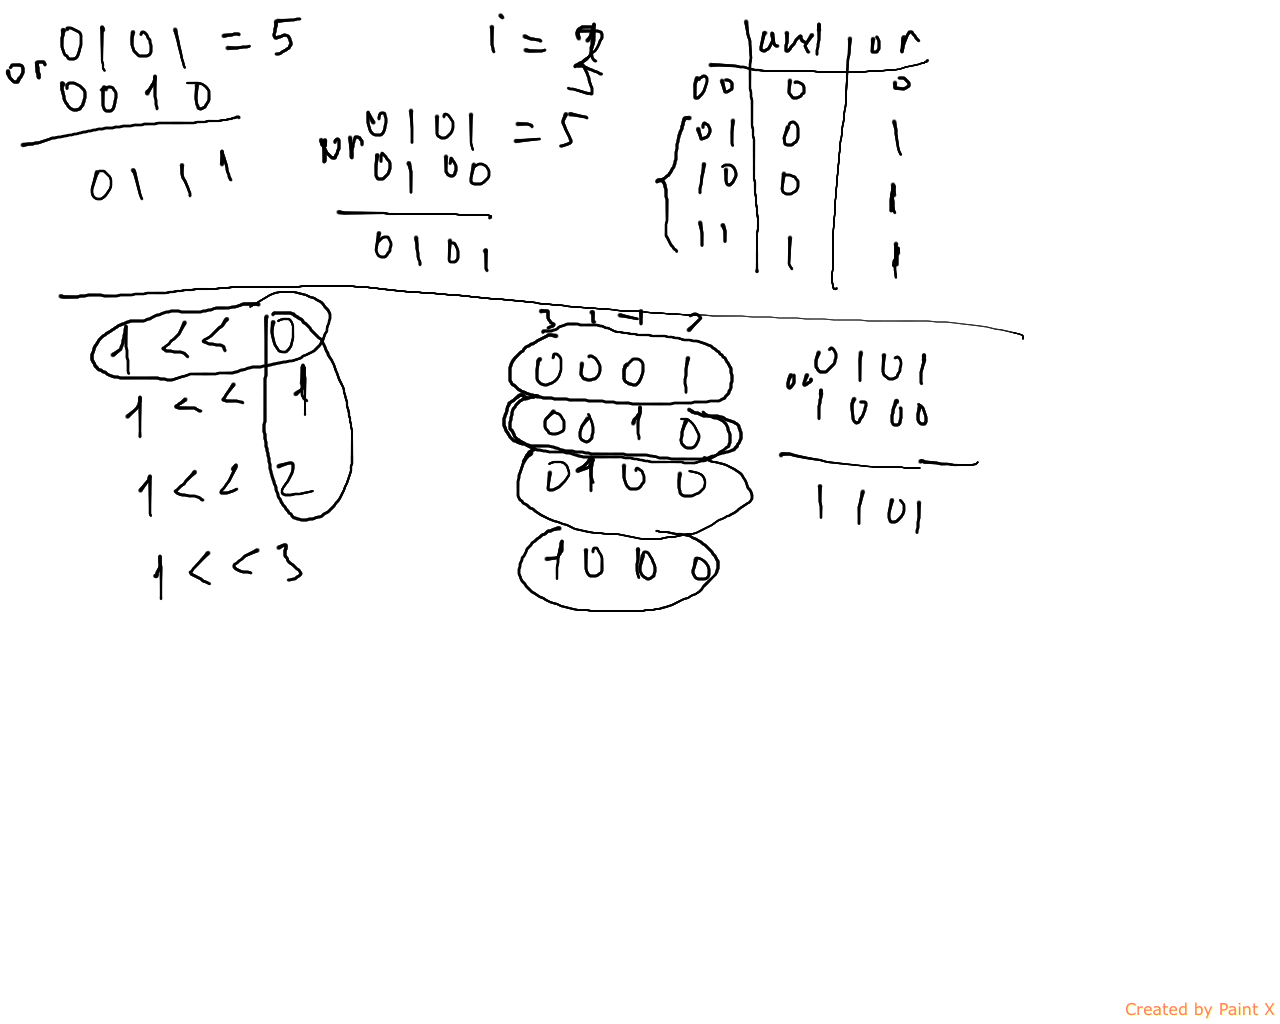 0101 = 5
or
0010
0111
i =
0101 = 5
or
0100
0101
or
00 0 0
01 0 1
10 0 1
11 1 1
1 << 0
1 << 1
1 << 2
1 << 3
0001
0010
0100
1000
0101
1000
1101
Created by Paint X